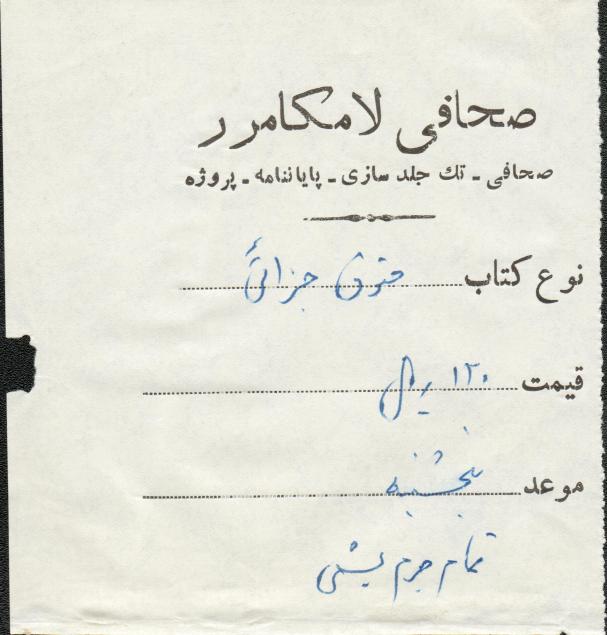 صحافی لامکامرر
صحافی - تك جلد سازی - پایاننامه - پروژه
نوع کتاب حقوق جزائی
قیمت ۱۲۰ ریال
موعد پنجشنبه
تمام چرم میشی